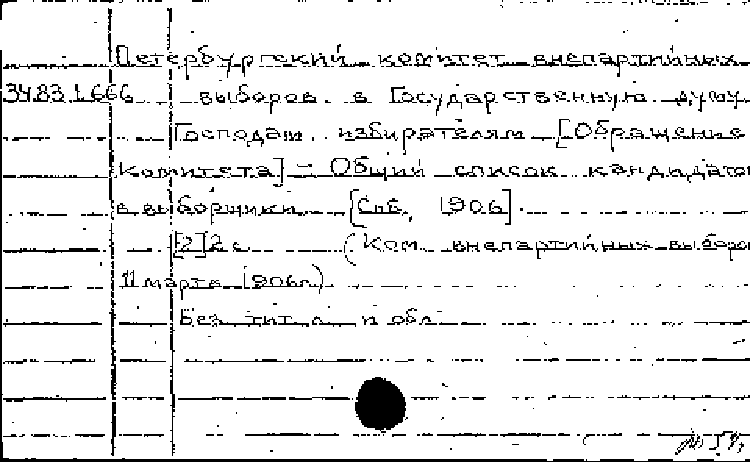 Петербургский комитет внепартийных
34.83.1.666 выборов в Государственную думу
Господам избирателям [Обращение
Комитета] - Общий список кандидато
в выборщики [Спб, 1906].
[2] 2 с (Ком. внепартийных выборо
11 марта 1906г)
Без тит л и обл